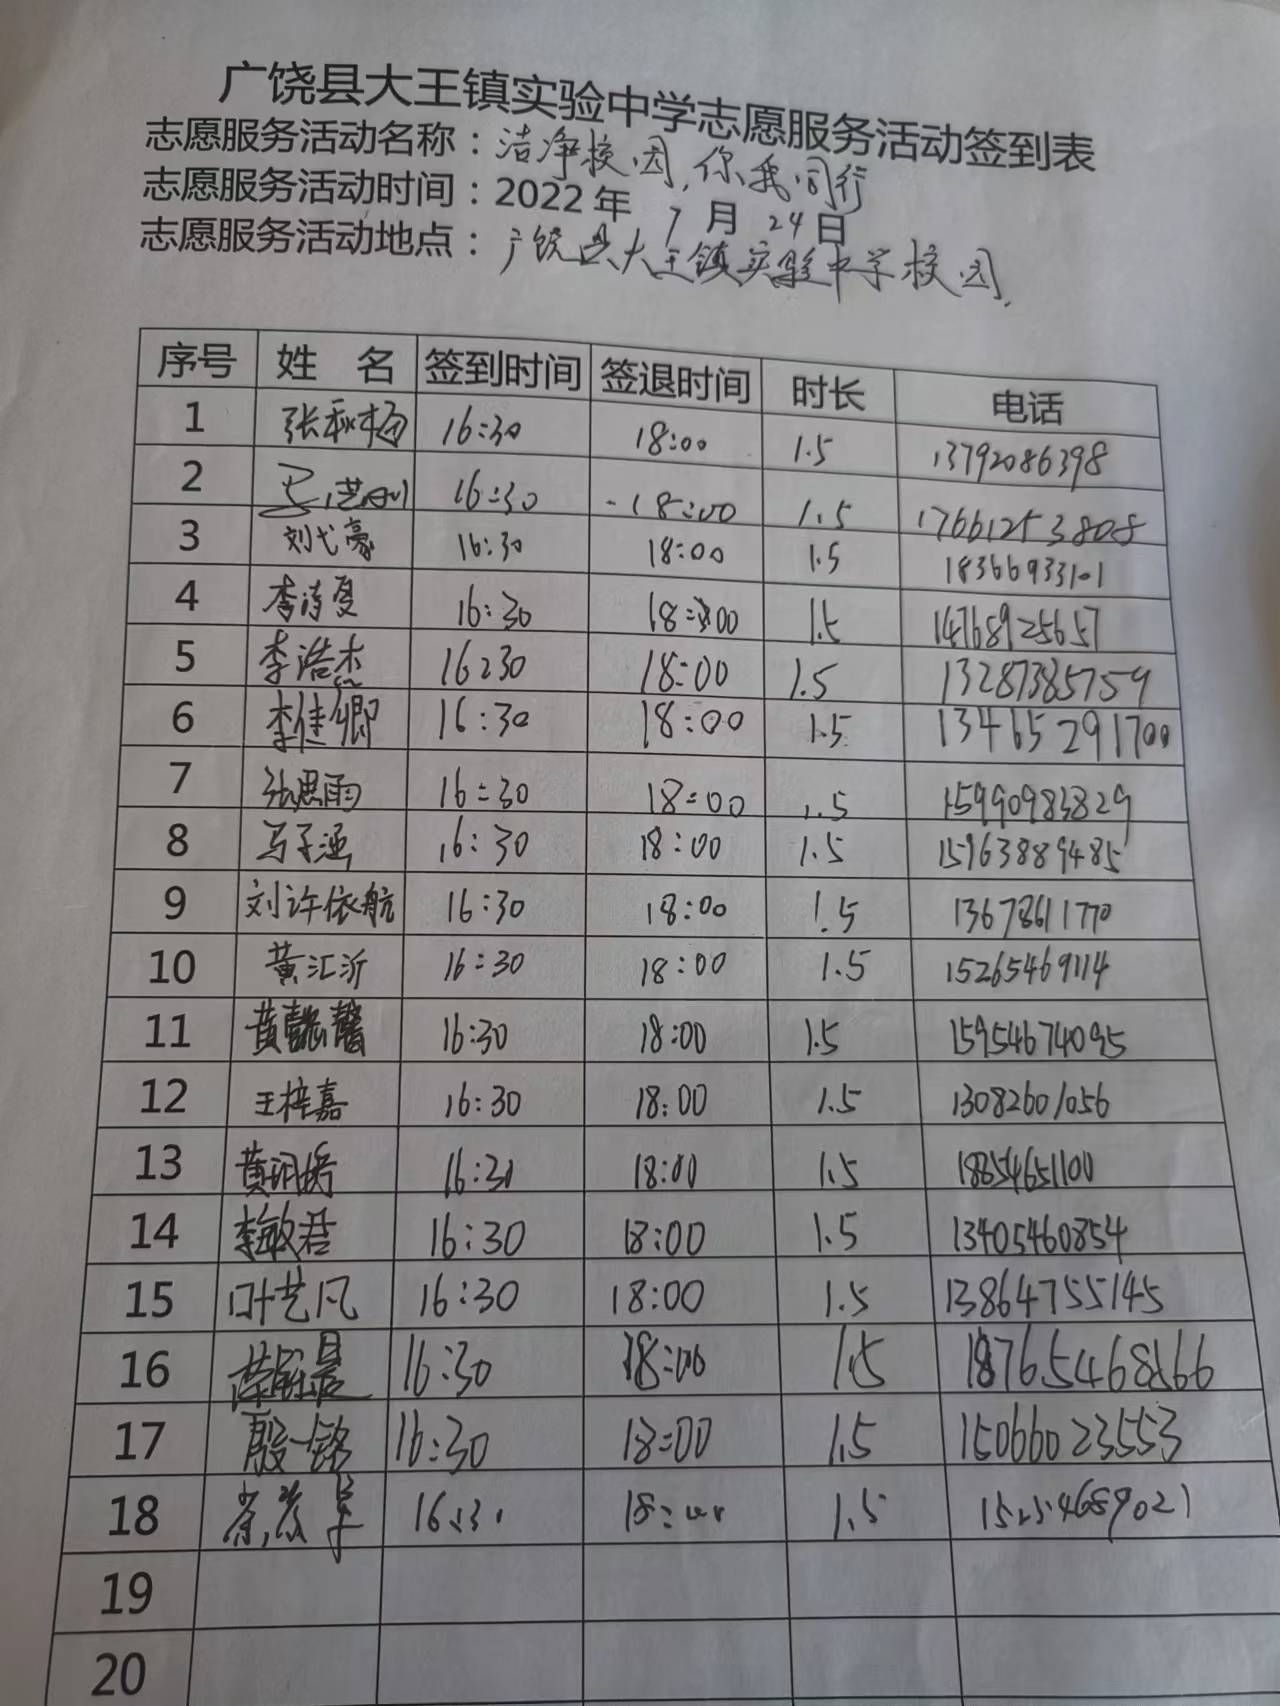 广饶县大王镇实验中学志愿服务活动签到表
志愿服务活动名称：洁净校园，你我同行
志愿服务活动时间：2022年 7月 24日
志愿服务活动地点：广饶县大王镇实验中学校园.
序号 姓 名 签到时间 签退时间 时长 电话
1 张秋梅 16:30 18:00 1.5 13792086398
2 16:30 18:00 1.5 17661253808
3 刘弋豪 16:30 18:00 1.5 18366933101
4 李诗夏 16:30 18:00 1.5 14768925657
5 李浩杰 16:30 18:00 1.5 13287385759
6 李佳卿 16:30 18:00 1.5 13465291700
7 张思雨 16:30 18:00 1.5 15990983829
8 马子涵 16:30 18:00 1.5 15963889485
9 刘许依航 16:30 18:00 1.5 13678611770
10 黄汇沂 16:30 18:00 1.5 15265469114
11 黄懿馨 16:30 18:00 1.5 15954674095
12 王梓嘉 16:30 18:00 1.5 13082601056
13 16:30 18:00 1.5 18854651100
14 李敏君 16:30 18:00 1.5 13405460854
15 叶艺凡 16:30 18:00 1.5 13864755145
16 16:30 18:00 1.5 18765468566
17 殷一铭 16:30 18:00 1.5 15066023553
18 16:30 18:00 1.5
19
20